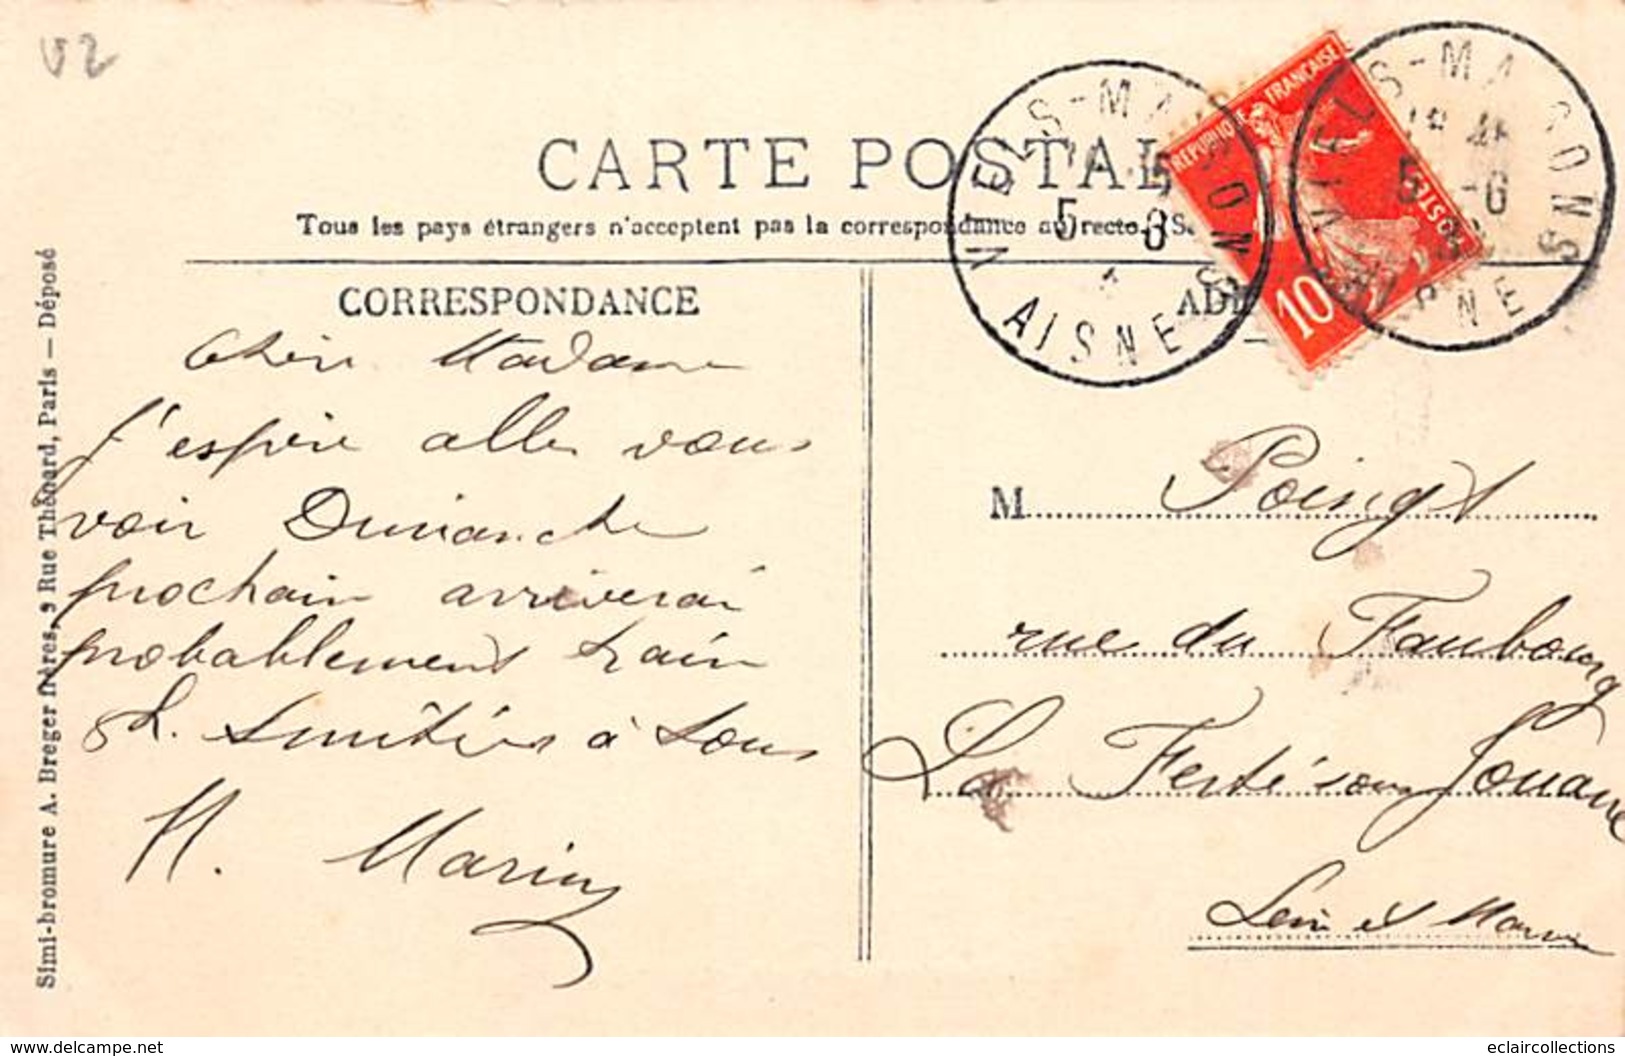 V2
CARTE POSTAL
Tous les pays étrangers n'acceptent pas la correspondance au recto. S
CORRESPONDANCE
Simi-bromure A. Breger frères, 9 Rue Thénard, Paris — Déposé
Chère Madame
J'espère aller vous
voir Dimanche
prochain arriverai
probablement train
8h. Amitiés à tous
H.
VIELS-MAISONS
5 -6
AISNE
RÉPUBLIQUE FRANÇAISE
POSTES
10
VIELS-MAISONS
18 45
5 -6
AISNE
M Poingt
rue du Faubourg
La Ferté sous Jouarre
Seine et Marne
www.delcampe.net
eclaircollections